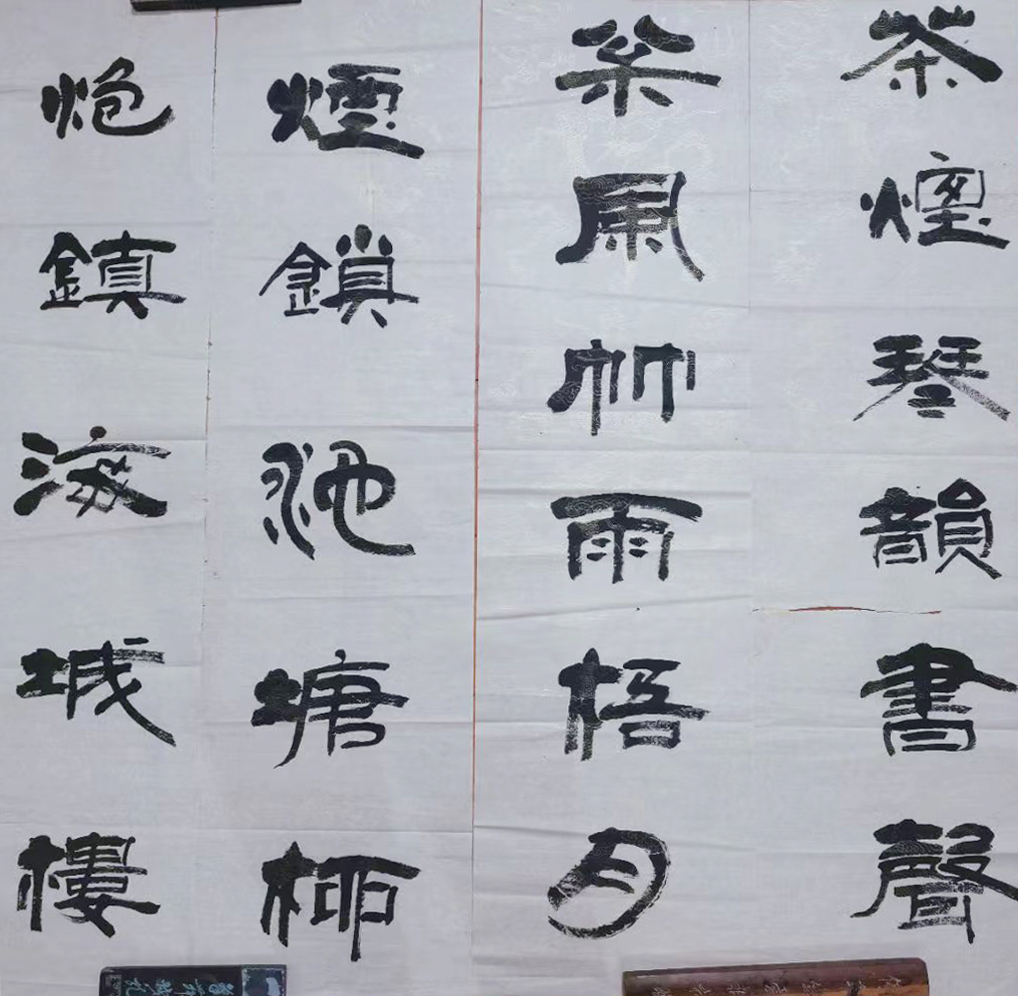 茶煙琴韻書聲
松風竹雨梧月
煙鎖池塘柳
炮鎮海城樓